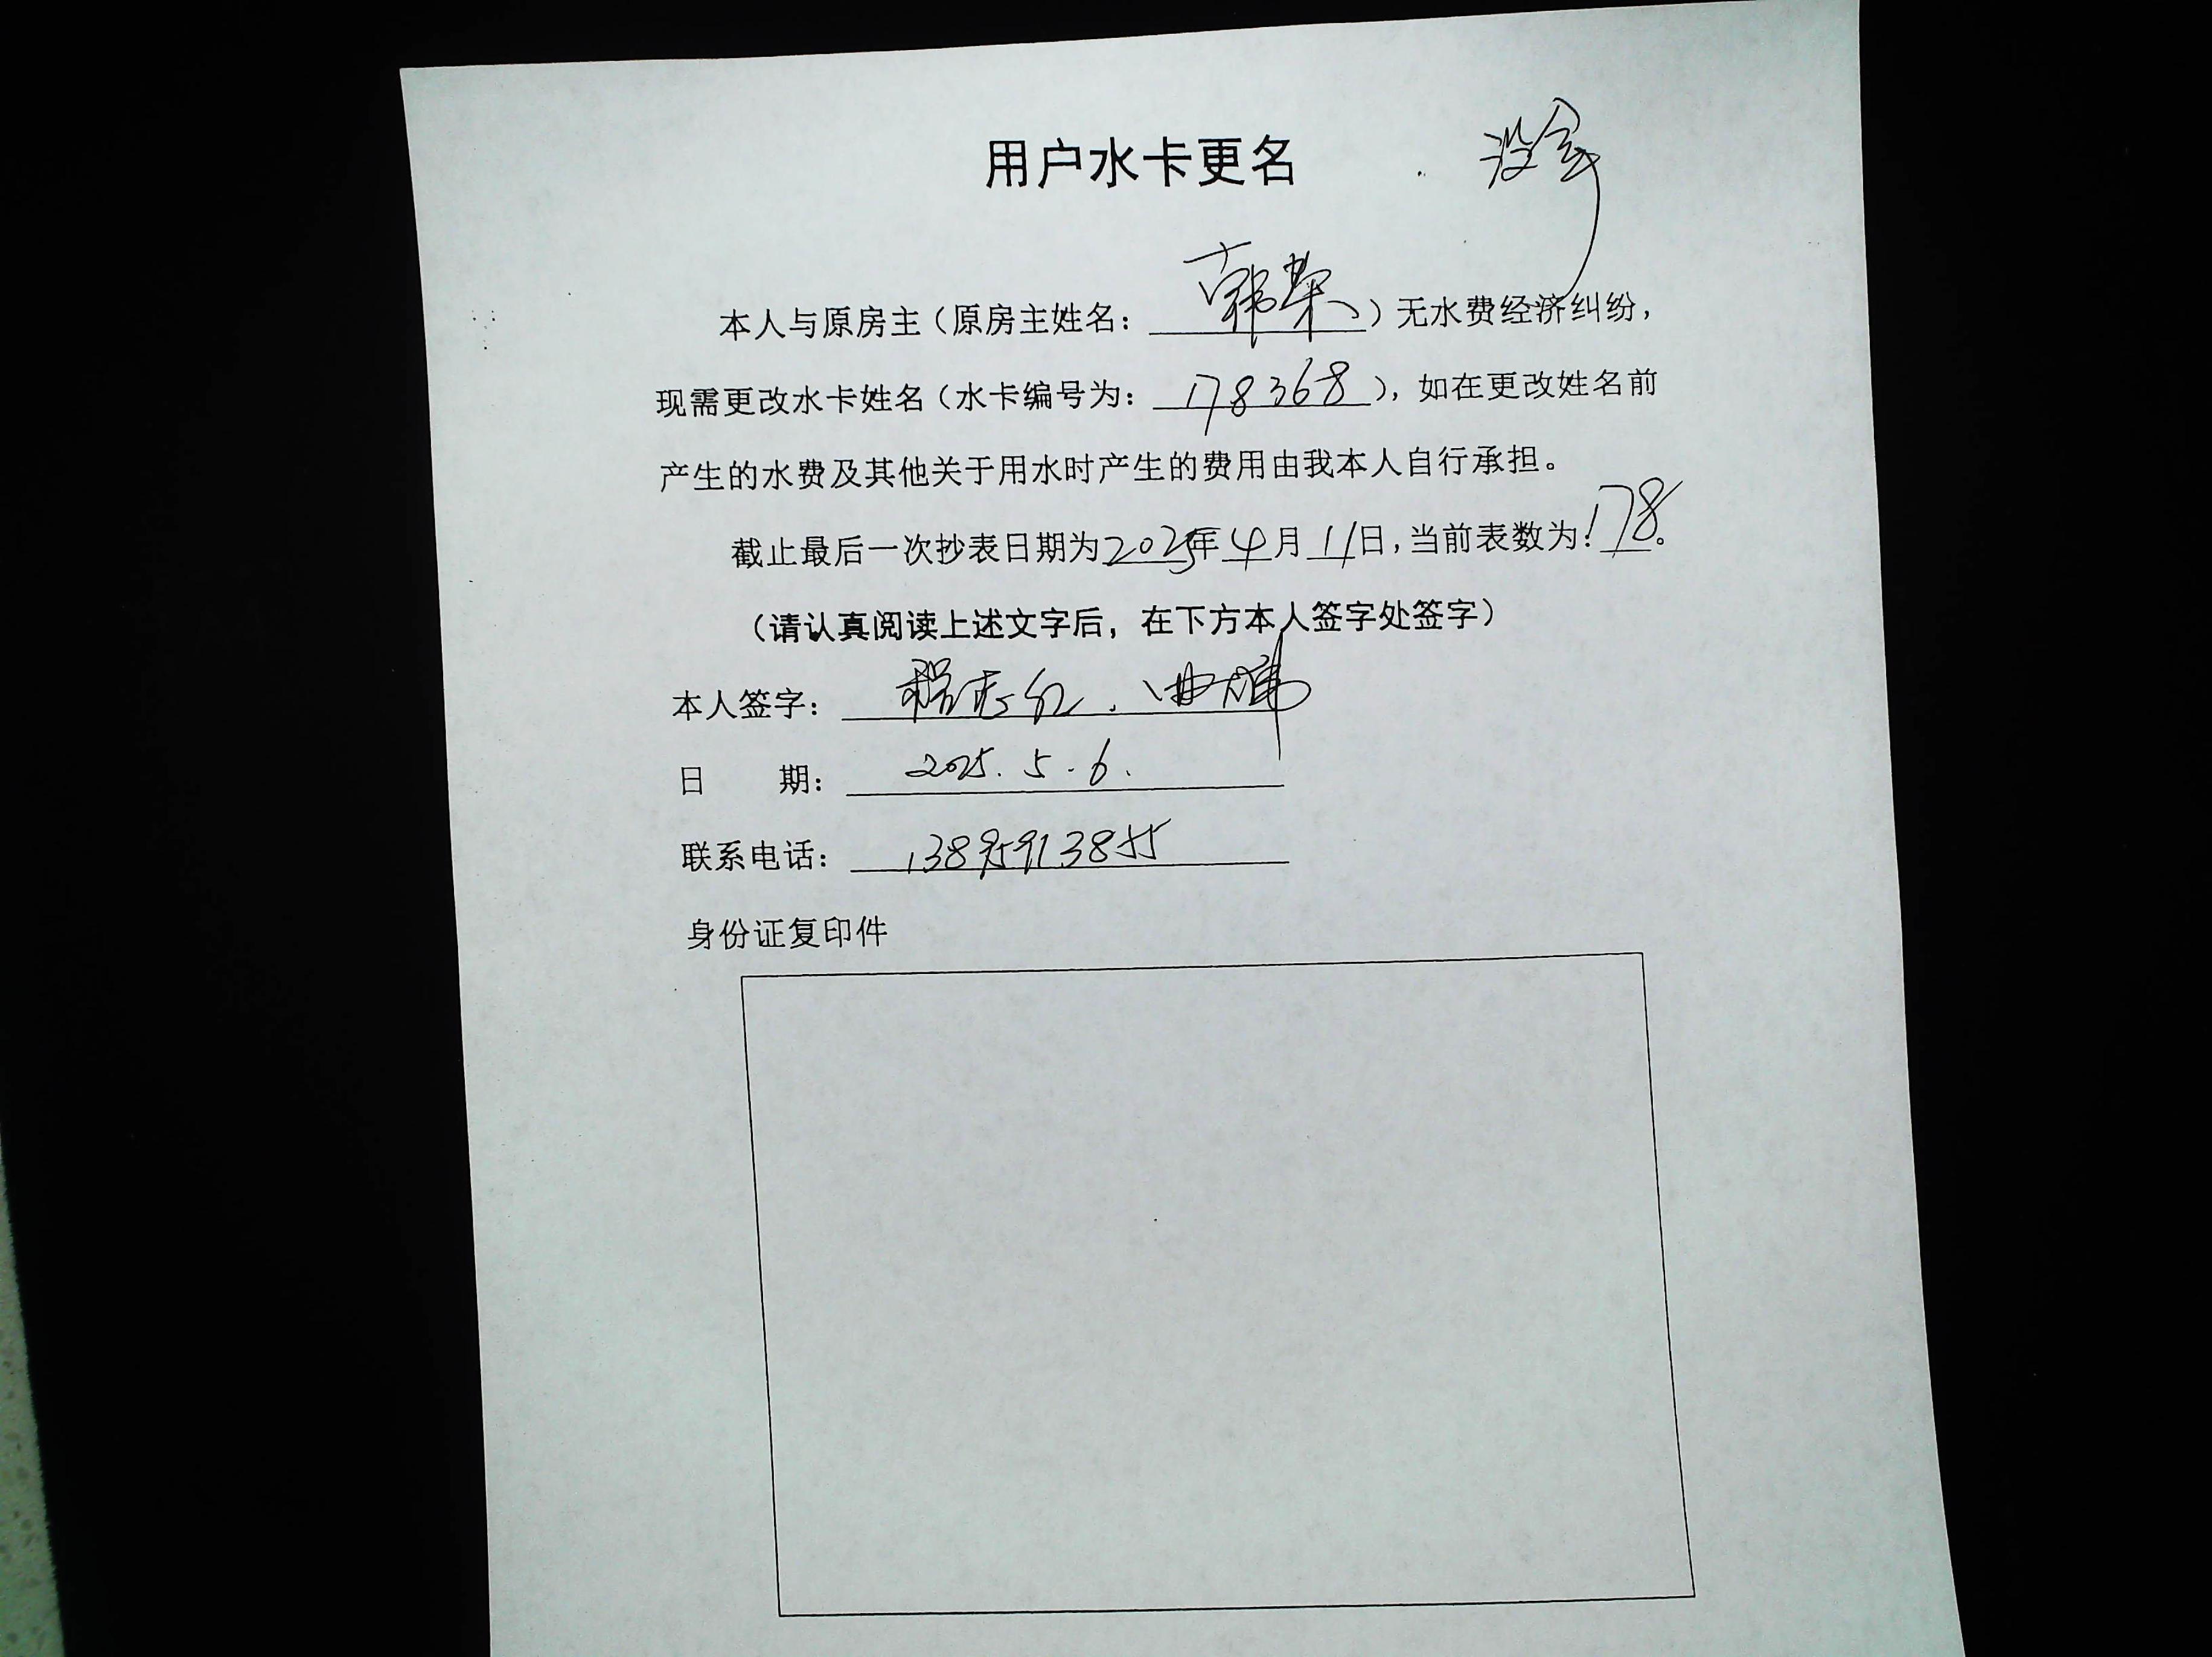 用户水卡更名
本人与原房主（原房主姓名：韩荣）无水费经济纠纷，
现需更改水卡姓名（水卡编号为：178368），如在更改姓名前
产生的水费及其他关于用水时产生的费用由我本人自行承担。
截止最后一次抄表日期为2025年4月11日，当前表数为：178。
（请认真阅读上述文字后，在下方本人签字处签字）
本人签字：程志红．曲雄
日 期：2025.5.6.
联系电话：13895913855
身份证复印件